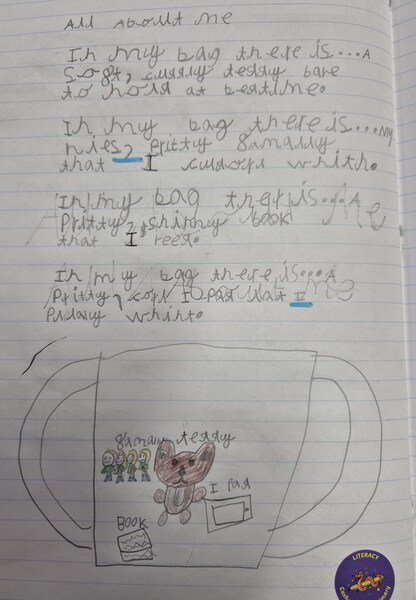 All About me
In my bag there is...A
Soft, cuddly teddy bare
to hold at bedtime.
In my bag there is...My
nies, pritty famally
that I cudorl whith.
In my bag ther is...A
Pritty, shinny book
that I reed.
In my bag there is...A
Pritty, I pad that I
Pladay whith.
famaly teddy
I Pad
Book
LITERACY